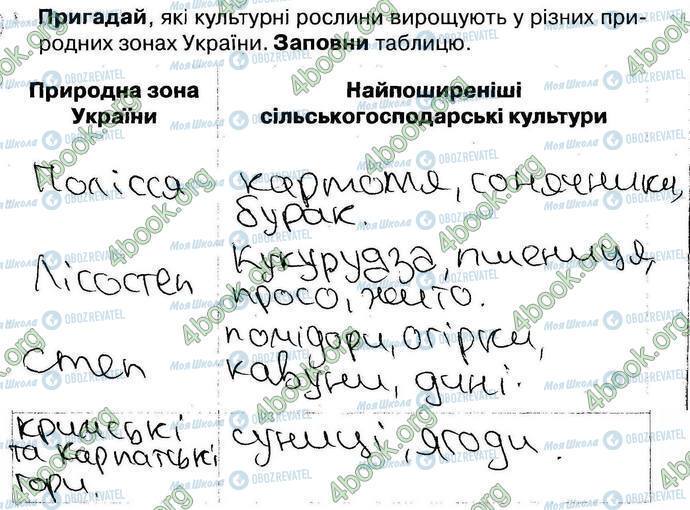 Пригадай, які культурні рослини вирощують у різних при-
родних зонах України. Заповни таблицю.
Природна зона
України
Найпоширеніші
сільськогосподарські культури
Полісся
картопля, сонячники,
бурак.
Лісостеп
Кукурудза, пшениця,
просо, жито.
Степ
помідори, огірки,
кавуни, дині.
кримські
та Карпатські
гори.
суниці, ягоди.
4book.org
Моя Школа
OBOZREVATEL